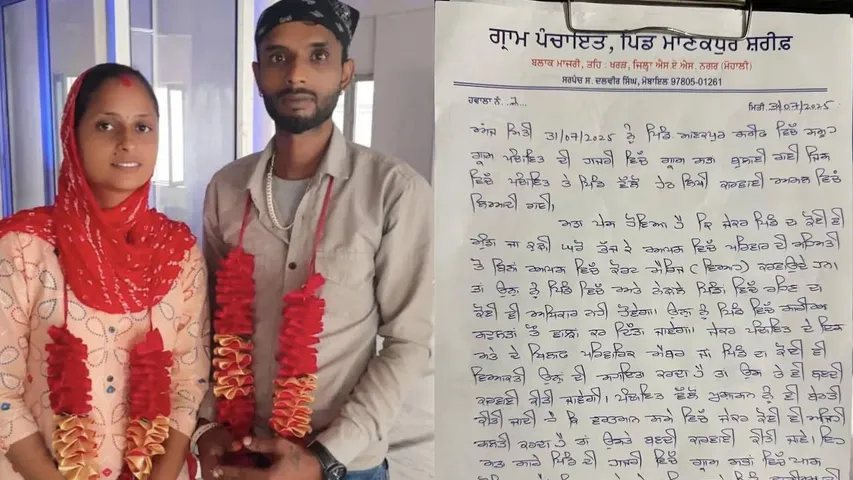 ਗ੍ਰਾਮ ਪੰਚਾਇਤ, ਪਿੰਡ ਮਾਣਕਪੁਰ ਸ਼ਰੀਫ਼
ਬਲਾਕ ਮਾਜਰੀ, ਤਹਿ: ਖਰੜ, ਜ਼ਿਲ੍ਹਾ ਐਸ.ਏ.ਐਸ. ਨਗਰ (ਮੋਹਾਲੀ)
ਸਰਪੰਚ ਸ. ਦਲਵੀਰ ਸਿੰਘ, ਮੋਬਾਇਲ 97805-01261
ਹਵਾਲਾ ਨੰ.
ਮਿਤੀ 31/07/2025
ਮਿਤੀ 31/07/2025 ਨੂੰ ਪਿੰਡ ਮਾਣਕਪੁਰ ਸ਼ਰੀਫ ਵਿੱਚ
ਗ੍ਰਾਮ ਪੰਚਾਇਤ ਦੀ ਹਾਜਰੀ ਵਿੱਚ ਗ੍ਰਾਮ ਸਭਾ ਬੁਲਾਈ ਗਈ ਜਿਸ
ਵਿੱਚ ਪੰਚਾਇਤ ਤੇ ਪਿੰਡ ਵੱਲੋਂ ਹੇਠ ਲਿਖੀ ਕਰਵਾਈ ਅਮਲ ਵਿੱਚ
ਲਿਆਂਦੀ ਗਈ,
ਮਤਾ ਪੇਸ਼ ਹੋਇਆ ਹੈ ਕਿ ਜੇਕਰ ਪਿੰਡ ਦਾ ਕੋਈ ਵੀ
ਮੁੰਡਾ ਜਾਂ ਕੁੜੀ ਘਰੋਂ ਭੱਜ ਕੇ ਆਪਸ ਵਿੱਚ ਪਰਿਵਾਰ ਦੀ ਸਹਿਮਤੀ
ਤੋਂ ਬਿਨਾਂ ਆਪਸ ਵਿੱਚ ਕੋਰਟ ਮੈਰਿਜ (ਵਿਆਹ) ਕਰਵਾਉਂਦੇ ਹਨ।
ਤਾਂ ਉਨ੍ਹਾਂ ਨੂੰ ਪਿੰਡ ਵਿੱਚ ਅਤੇ ਨੇੜਲੇ ਪਿੰਡਾਂ ਵਿੱਚ ਰਹਿਣ ਦਾ
ਕੋਈ ਵੀ ਅਧਿਕਾਰ ਨਹੀਂ ਹੋਵੇਗਾ। ਉਨ੍ਹਾਂ ਨੂੰ ਪਿੰਡ ਵਿੱਚ
ਕਰ ਦਿੱਤਾ ਜਾਵੇਗਾ। ਜੇਕਰ ਪੰਚਾਇਤ ਦੇ ਇਸ
ਮਤੇ ਦੇ ਖਿਲਾਫ ਪਰਿਵਾਰਿਕ ਮੈਂਬਰ ਜਾਂ ਪਿੰਡ ਦਾ ਕੋਈ ਵੀ
ਵਿਅਕਤੀ ਉਨ੍ਹਾਂ ਦੀ ਕਰਦਾ ਹੈ ਤਾਂ ਉਸ ਤੇ ਵੀ
ਕਰਵਾਈ ਕੀਤੀ ਜਾਵੇਗੀ। ਪੰਚਾਇਤ ਵੱਲੋਂ ਪ੍ਰਸ਼ਾਸਨ ਨੂੰ ਵੀ ਬੇਨਤੀ
ਕੀਤੀ ਜਾਂਦੀ ਹੈ ਕਿ ਵਿੱਚ ਜੇਕਰ ਕੋਈ ਵੀ ਅਜਿਹੀ
ਗਲਤੀ ਕਰਦਾ ਹੈ ਤਾਂ ਕਰਵਾਈ ਕੀਤੀ ਜਾਵੇ। ਇਹ
ਮਤਾ ਸਾਰੇ ਪਿੰਡ ਦੀ ਹਾਜਰੀ ਵਿੱਚ ਗ੍ਰਾਮ ਸਭਾ ਵਿੱਚ ਪਾਸ